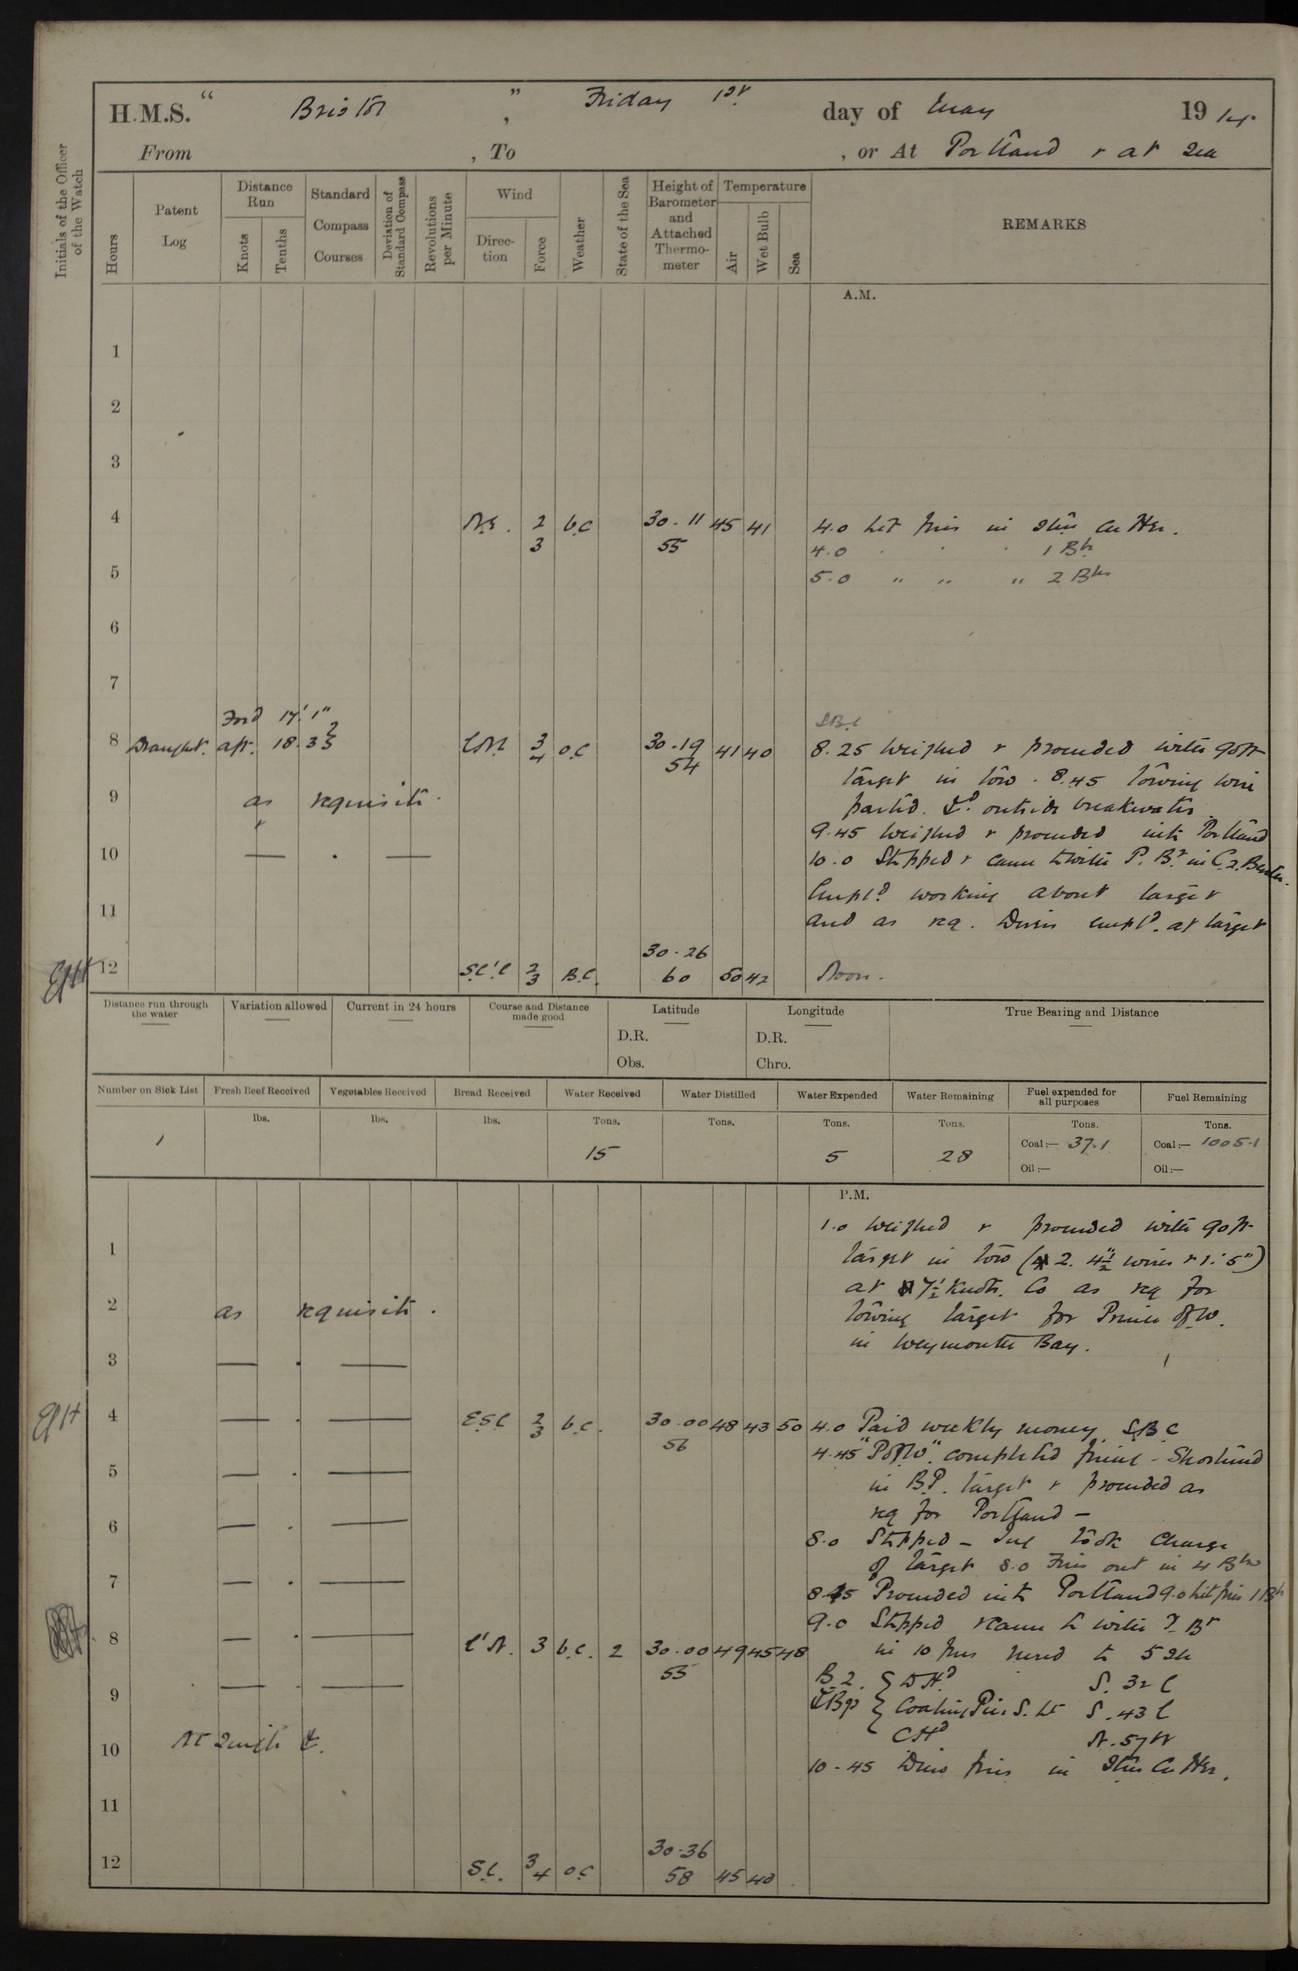 H.M.S. " Bristol ", Friday 1st day of May 1914.
From , To , or At Portland & at Sea
Initials of the Officer of the Watch
Hours
Patent Log
Distance Run
Knots
Tenths
Standard Compass Courses
Deviation of Standard Compass
Revolutions per Minute
Wind
Direction
Force
Weather
State of the Sea
Height of Barometer and Attached Thermometer
Temperature
Air
Wet Bulb
Sea
REMARKS
A.M.
1
2
3
4 N.E. 2 b.c 30.11 45 41 4.0 Lib men in Stm Cutter.
3 55 4.0 " " " 1 Bt
5 5.0 " " " 2 Bts
6
7
Ford 17' 1"
8 Draught. aft. 18. 3 E.N.E 3 4 o.c 30.19 54 41 40 8.25 Weighed & proceeded with 90ft
target in tow. 8.45 towing wire
9 as requisite. parted. outside breakwater.
9.45 Weighed & proceeded into Portland
10 — . — 10.0 Stopped & came to with P. Br in C.2. Berth.
Empld working about target
11 and as req. Divers empld. at target
12 S.E'E 2 3 B.C. 30.26 60 50 42 Noon.
Distance run through the water
Variation allowed
Current in 24 hours
Course and Distance made good
Latitude
D.R.
Obs.
Longitude
D.R.
Chro.
True Bearing and Distance
Number on Sick List 1
Fresh Beef Received lbs.
Vegetables Received lbs.
Bread Received lbs.
Water Received Tons. 15
Water Distilled Tons.
Water Expended Tons. 5
Water Remaining Tons. 28
Fuel expended for all purposes Tons. Coal:— 37.1 Oil:—
Fuel Remaining Tons. Coal:— 1005.1 Oil:—
P.M.
1.0 Weighed & proceeded with 90ft
1 target in tow (2. 4½" wires & 1. 5")
at 7½ knots. Co as req for
2 as requisite. towing target for Prince of W.
in Weymouth Bay.
3 — . —
4 — . — E.S.E 2 3 b.c. 30.00 56 48 43 50 4.0 Paid weekly money
4.45 "P of W". completed firing - Shortened
5 — . — in B.P. target & proceeded as
req for Portland —
6 — . — 8.0 Stopped - Tug took charge
of target 8.0 men out in 4 Bts
7 — . — 8.45 Proceeded into Portland 9.0 Lib men 1 Bt
9.0 Stopped & came to with P. Br
8 — . — E'N. 3 b.c. 2 30.00 55 49 45 48 in 10 fms veered to 5 Sh
B.2. D Hd S. 32 E
9 — . — Bg Coaling Pier S. Lt S. 43 E
C Hd N. 57 W
10 10.45 men in Stm Cutter.
11
12 S.E. 3 4 o.c 30.36 58 45 43